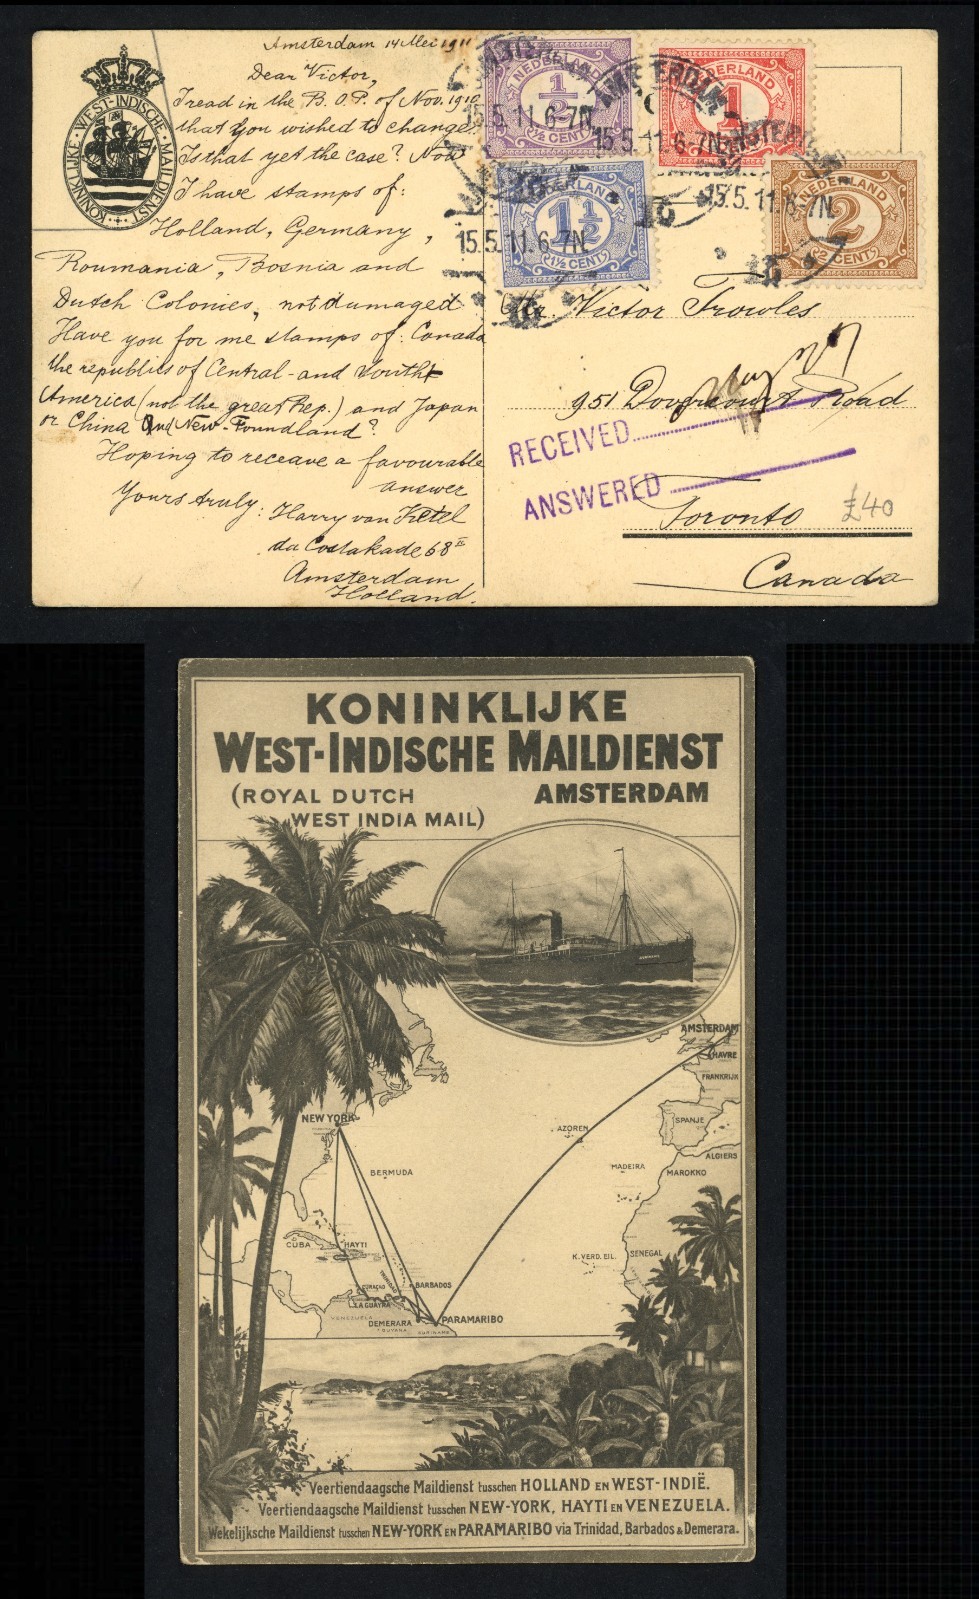 Amsterdam 14 Mei 1911
Dear Victor,
I read in the B.O.P. of Nov. 1910
that you wished to change.
Is that yet the case? Now
I have stamps of:
Holland, Germany,
Roumania, Bosnia and
Dutch Colonies, not damaged
Have you for me stamps of: Canada
the republics of Central- and South
America (not the great Rep.) and Japan
or China and New-Foundland?
Hoping to receave a favourable
answer
Yours truly: Harry van Ketel
da Costakade 68 II
Amsterdam
Holland.
KONINKLIJKE · WEST-INDISCHE · MAILDIENST
NEDERLAND
½
½ CENT
NEDERLAND
1
NEDERLAND
1½
1½ CENT
NEDERLAND
2
2 CENT
AMSTERDAM
15.5.11.6-7N
15.5.11.6-7N
15.5.11.6-7N
15.5.11.6-7N
Victor Trowles
951 Dovercourt Road
RECEIVED
ANSWERED
Toronto
£40
Canada
KONINKLIJKE
WEST-INDISCHE MAILDIENST
(ROYAL DUTCH
WEST INDIA MAIL)
AMSTERDAM
AMSTERDAM
HAVRE
FRANKRIJK
NEW YORK
AZOREN
SPANJE
ALGIERS
BERMUDA
MADEIRA
MAROKKO
CUBA
HAYTI
K. VERD. EIL.
SENEGAL
CURAÇAO
TRINIDAD
BARBADOS
LA GUAYRA
VENEZUELA
DEMERARA
PARAMARIBO
GUYANA
SURINAME
Veertiendaagsche Maildienst tusschen HOLLAND EN WEST-INDIË.
Veertiendaagsche Maildienst tusschen NEW-YORK, HAYTI EN VENEZUELA.
Wekelijksche Maildienst tusschen NEW-YORK EN PARAMARIBO via Trinidad, Barbados & Demerara.